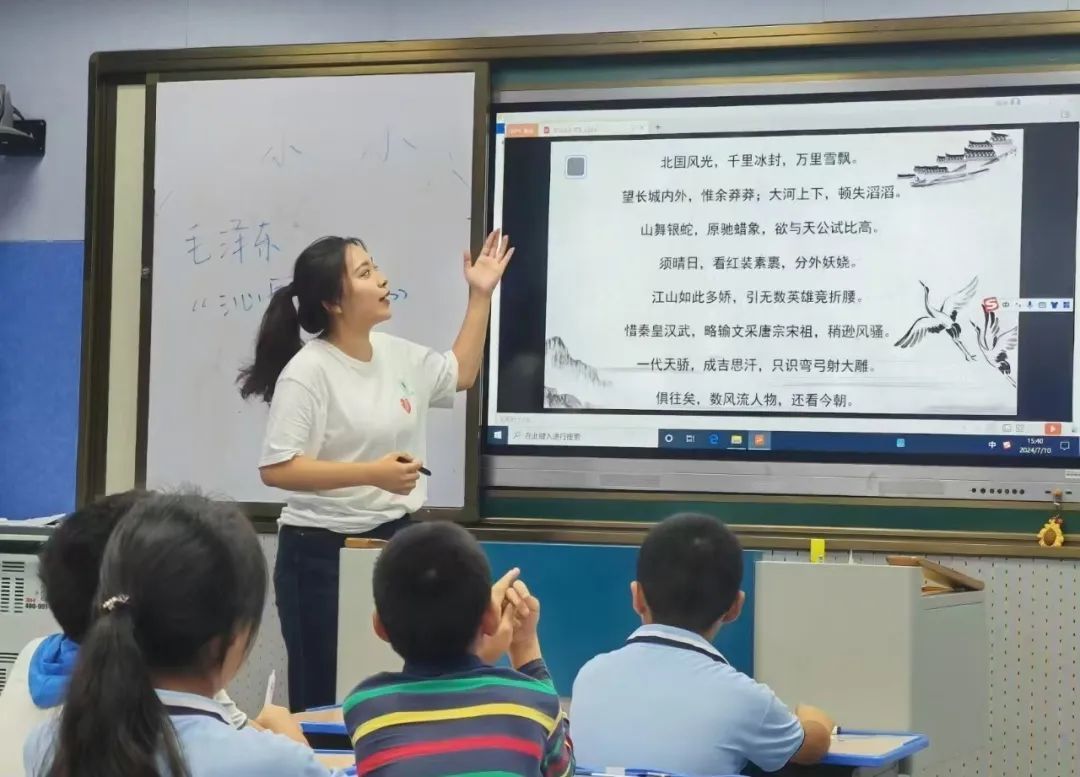 小 小
毛泽东
《沁
北国风光，千里冰封，万里雪飘。
望长城内外，惟余莽莽；大河上下，顿失滔滔。
山舞银蛇，原驰蜡象，欲与天公试比高。
须晴日，看红装素裹，分外妖娆。
江山如此多娇，引无数英雄竞折腰。
惜秦皇汉武，略输文采唐宗宋祖，稍逊风骚。
一代天骄，成吉思汗，只识弯弓射大雕。
俱往矣，数风流人物，还看今朝。
S 中
在此键入进行搜索
中
15:40
2024/7/10